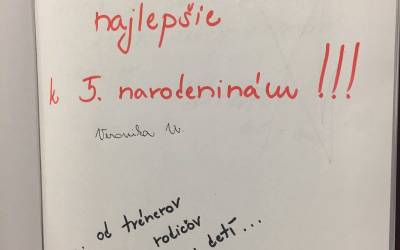 najlepšie
k 5. narodeninám !!!
Veronika U.
od trénerov
rodičov
detí...